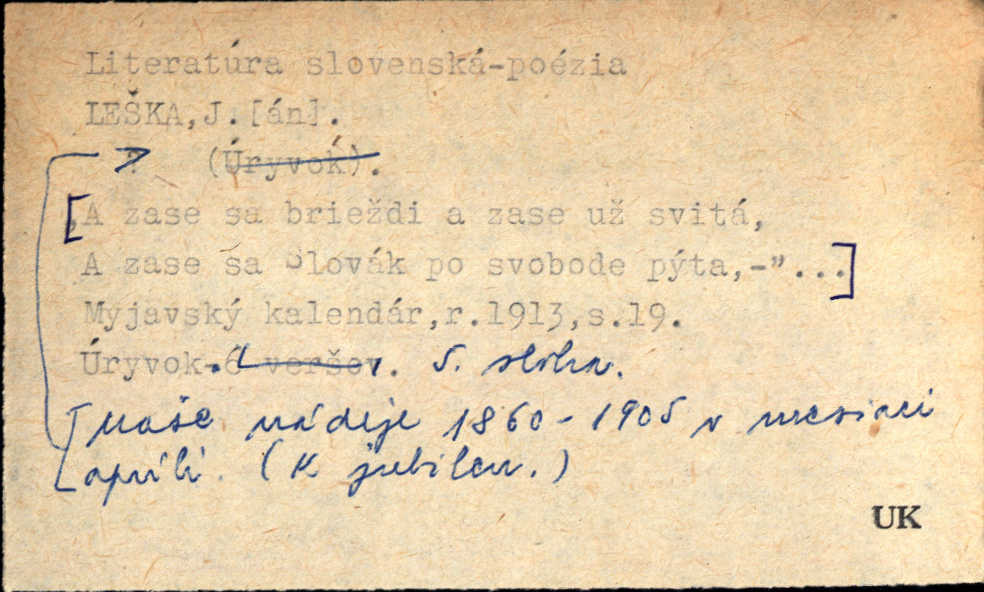 Literatúra slovenská-poézia
LEŠKA,J.[án].
? (Úryvok).
[„A zase sa brieždi a zase už svitá,
A zase sa Slovák po svobode pýta,-"...]
Myjavský kalendár,r.1913,s.19.
Úryvok-6 veršov. 5. sloha.
[Naše nádeje 1860-1905 v mesiaci
apríli. (K jubileu.)
UK